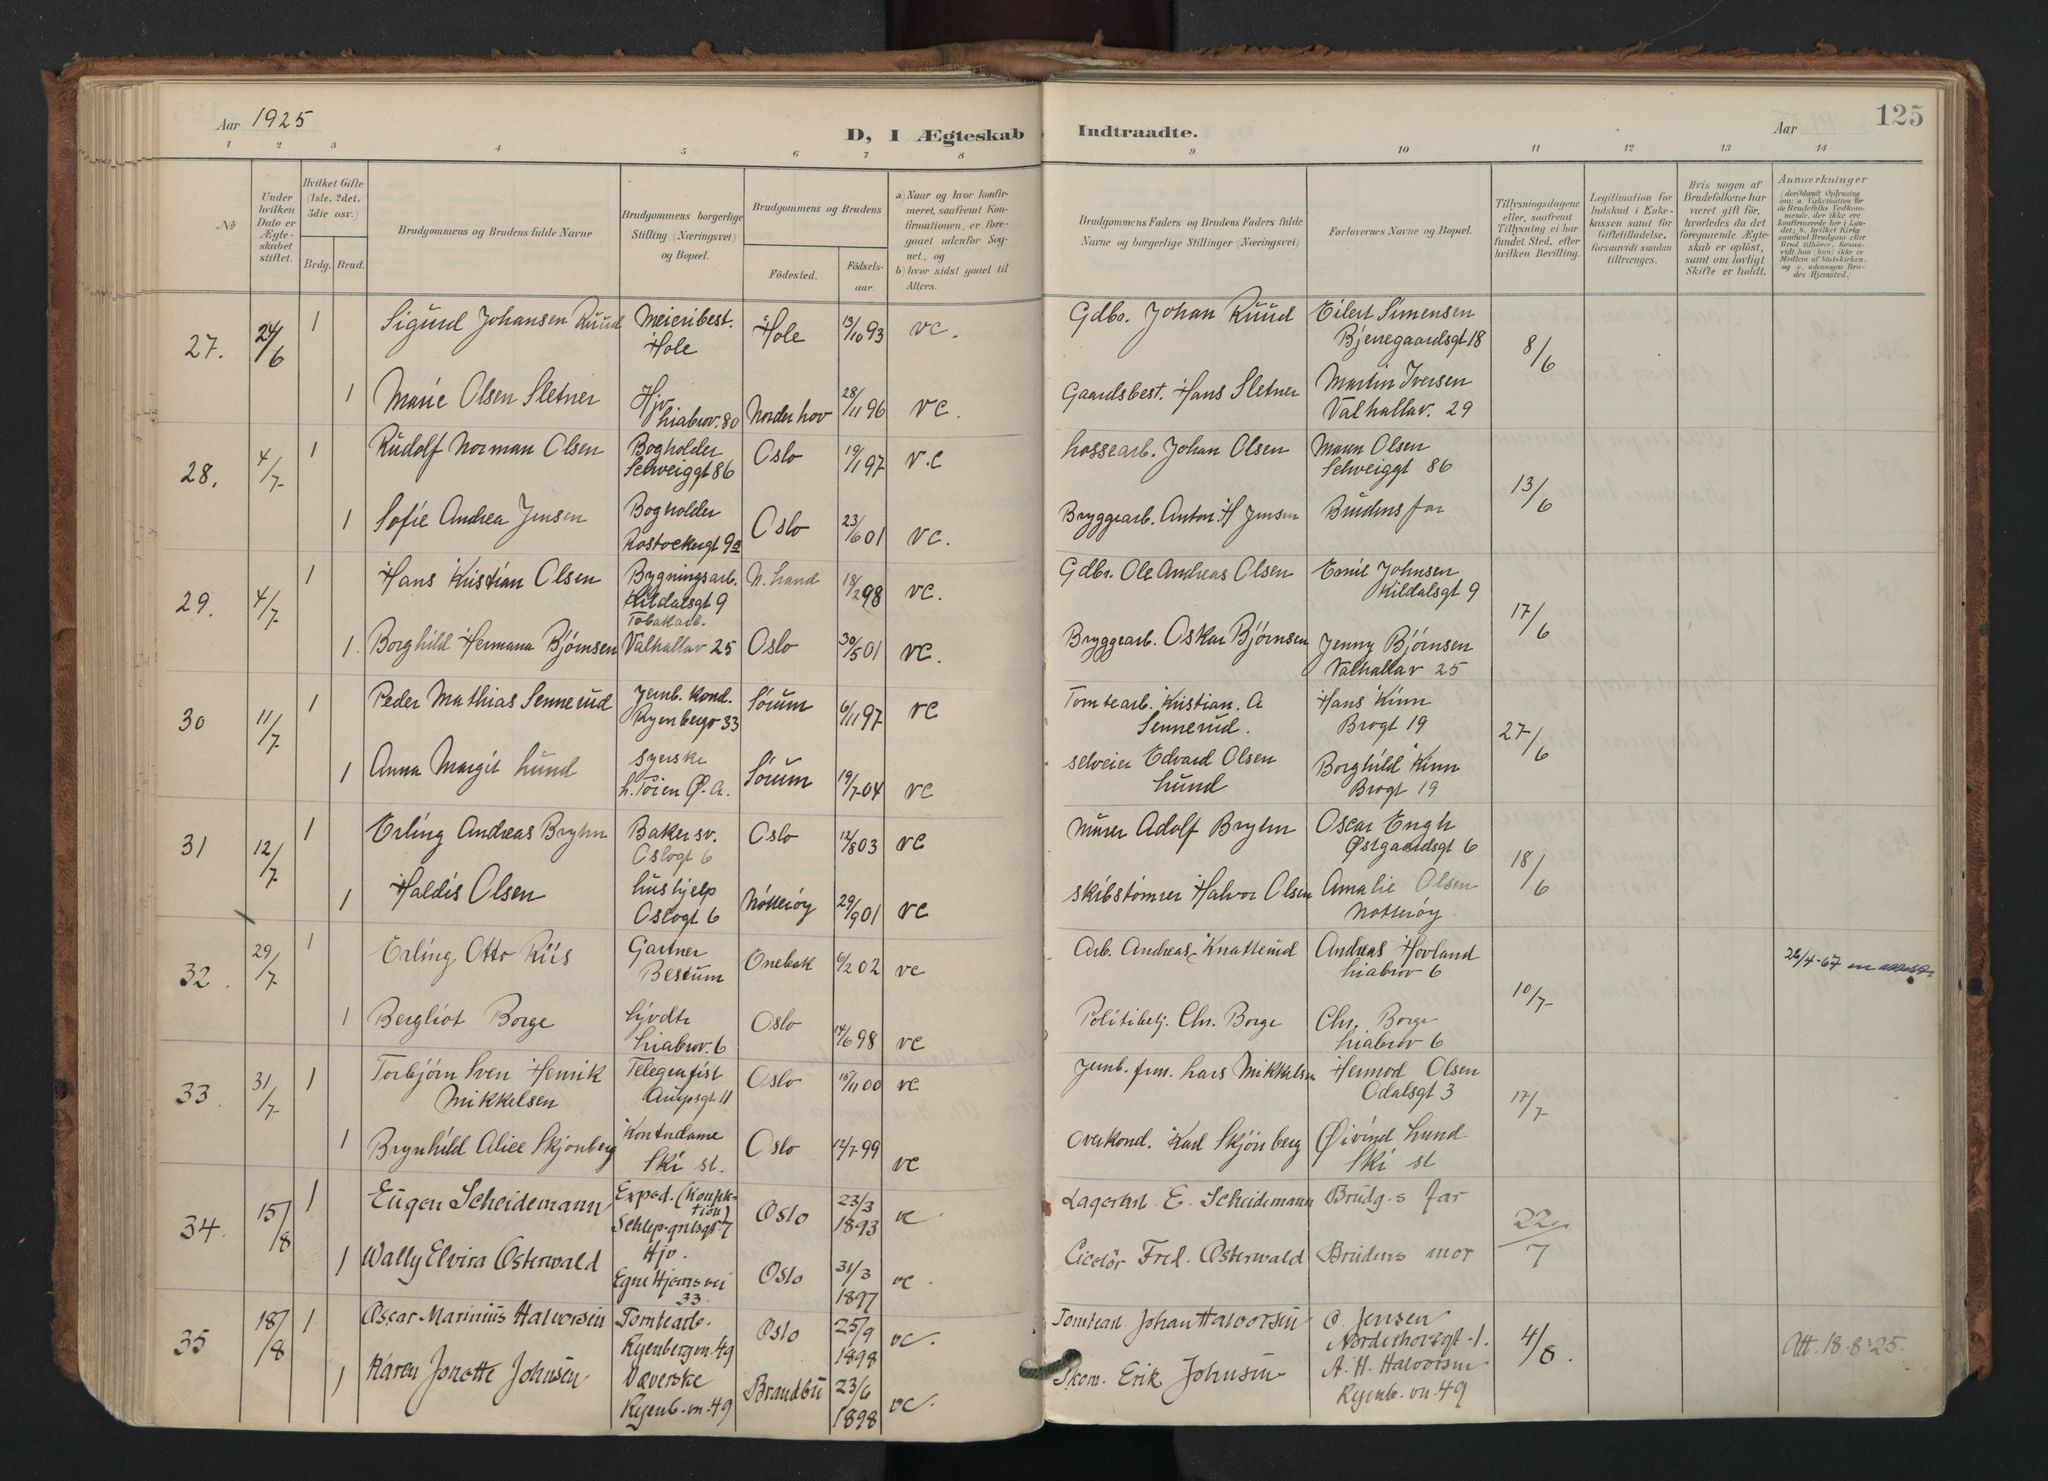 Aar 1925
D, I Ægteskab Indtraadte.
Aar
125
1 2 3 4 5 6 7 8 9 10 11 12 13 14
№
Under hvilken Dato er Ægteskabet stiftet.
Hvilket Gifte (1ste, 2det, 3die osv.)
Brdg. Brud.
Brudgommens og Brudens fulde Navne
Brudgommens borgerlige Stilling (Næringsvei) og Bopæl.
Brudgommens og Brudens
Fødested. Fødselsaar.
a) Naar og hvor konfirmeret, saafremt Konfirmationen, er foregaaet udenfor Sognet, og
b) hvor sidst gaaet til Alters.
Brudgommens Faders og Brudens Faders fulde Navne og borgerlige Stillinger (Næringsvei)
Forlovernes Navne og Bopæl.
Tillysningsdagene eller, saafremt Tillysning ei har fundet Sted, efter hvilken Bevilling.
Legitimation for Indskud i Enkekassen samt for Giftetilladelse, forsaavidt saadan tiltrænges.
Hvis nogen af Brudefolkene har været gift før, hvorledes da det foregaaende Ægteskab er opløst, samt om lovligt Skifte er holdt.
Anmærkninger
27. 24/6 1 Sigurd Johansen Ruud Meieribest. Hole Hole 13/10 93 vc. Gdbr. Johan Ruud Eilert Simensen Bjerregaardsgt 18 8/6
1 Marie Olsen Sletner Hjv. Liabrov. 80 Norderhov 28/11 96 vc. Gaardsbest. Hans Sletner Martin Iversen Valhallav. 29
28. 4/7 1 Rudolf Norman Olsen Bogholder Schweiggt 86 Oslo 19/1 97 v.c Lossearb. Johan Olsen Olsen Schweiggt 86 13/6
1 Sofie Andrea Jensen Bogholder Rostockergt 9 Oslo 23/6 01 vc. Bryggearb. Anton. H Jensen Brudens far
29. 4/7 1 Hans Kristian Olsen Bygningsarb. Kildalsgt 9 N. Land 18/2 98 vc. Gdbr. Ole Andreas Olsen Emil Johnsen Kildalsgt 9 17/6
1. Borghild Hermana Bjørnsen Tobakarb. Valhallav 25 Oslo 30/5 01 vc. Bryggearb. Oskar Bjørnsen Jenny Bjørnsen Valhallav 25
30 11/7 1 Peder Mathias Sennerud Jernb. kond. Ryenbergv 33 Sørum 6/11 97 vc Tomtearb. Kristian. A Sennerud. Hans Kinn Brogt 19 27/6
1 Anna Margit Lund Syerske L. Tøien Ø. A. Sørum 19/7 04 vc selveier Edvard Olsen Lund Borghild Kinn Brogt 19
31 12/7 1 Erling Andreas Bryhn Baker sv. Oslogt 6 Oslo 12/8 03 vc Murer Adolf Bryhn Oscar Engh Østgaardsgt 6 18/6
1 Haldis Olsen hushjelp Oslogt 6 Nøtterøy 29/9 01 vc skibstømrer Halvor Olsen Amalie Olsen Nøtterøy
32 29/7 1 Erling Otto Riis Gartner Bestum Enebak 6/2 02 vc Arb. Andreas Knatterud Andreas Hovland Liabrov 6 10/7 26/4-67
1 Bergliot Borge Liabrov. 6 Oslo 14/6 98 vc Politibetj. Chr. Borge Chr. Borge Liabrov 6
33 31/7 1 Torbjørn Sven Henrik Mikkelsen Telegrafist 11 Oslo 15/11 00 vc Jernb. fm. Lars Mikkelsen Hermod Olsen Odalsgt 3 17/7
1 Brynhild Alice Skjønberg Kontordame Ski st. Oslo 12/7 99 vc Overkond. Karl Skjønberg Øivind Lund Ski st
34. 15/8 1 Eugen Scheidemann Exped. (Konfektion) Schlep-grlsgt 7 Oslo 23/3 1893 vc Lagerbest. E. Scheidemann Brudg-s far 22/7
1 Wally Elvira Osterwald Hjv. Egne Hjemsvei 33. Oslo 31/3 1897 vc. Ciselør Fred. Osterwald Brudens mor
35 18/8 1 Oscar Marinius Halvorsen Tomtearb. Ryenbergvn. 49 Oslo 25/9 1898 vc. Tomtearb Johan Halvorsen O. Jensen Norderhovsgt-1. 4/8. Att. 18-8-25.
1 Karen Jonette Johnsen Væverske Ryenb. vn. 49 Brandbu 23/6 1898 vc. Skom. Erik Johnsen A. H. Halvorsen Ryenb. vn. 49